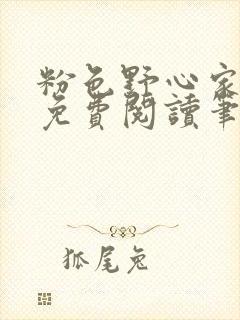 粉色野心家
免費閱讀筆
狐尾兔